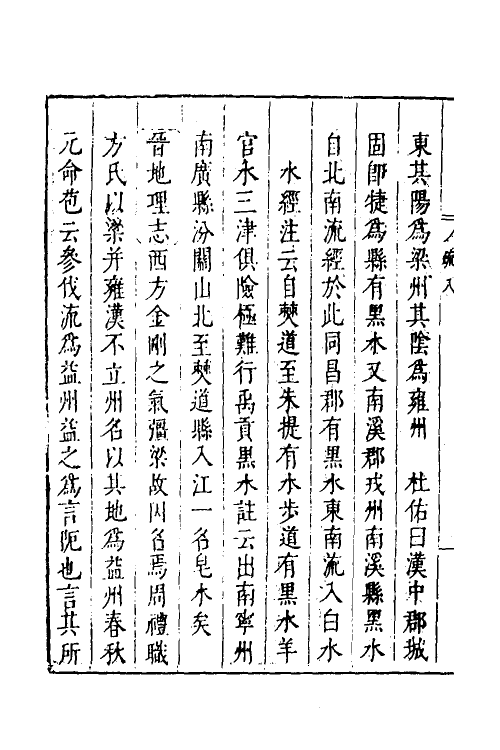 東其陽爲梁州其陰爲雍州　杜佑曰漢中郡城
固郎揵爲縣有黒水又南溪郡戎州南溪縣黒水
自北南流經於此同昌郡有黒水東南流入白水
水經注云自僰道至朱提有水步道有黒水羊
官水三津俱險極難行禹貢黒水註云出南寧州
南廣縣汾關山北至僰道縣入江一名皂水矣
晉地理志西方金剛之氣彊梁故因名焉周禮職
方氏以梁并雍漢不立州名以其地爲益州春秋
元命苞云參伐流爲益州益之爲言阨也言其所